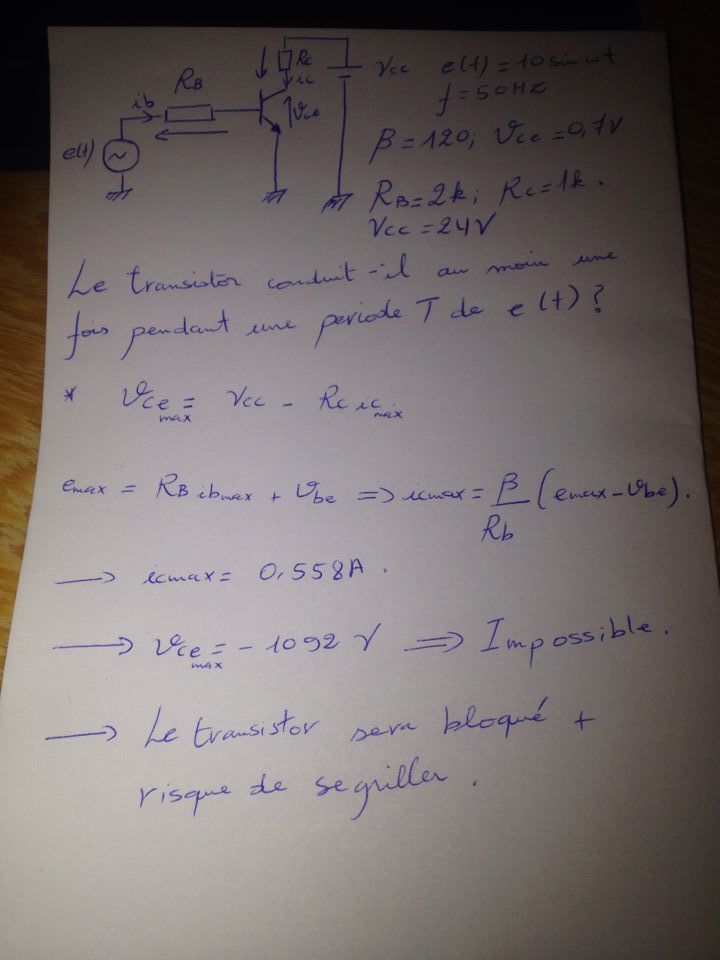 Rc
RB
ic
Vcc
e(t) = 10 sin wt
ib
Vce
f = 50 Hz
e(t)
~
β = 120; Vce = 0,7V
RB = 2k; Rc = 1k.
Vcc = 24V
Le transistor conduit-il au moin une
fois pendant une periode T de e(t)?
* Vce max = Vcc - Rc ic max
emax = RB ibmax + Vbe => icmax = β/Rb (emax - Vbe).
→ icmax = 0,558A.
→ Vce max = - 1092 V => Impossible.
→ Le transistor sera bloqué +
risque de se griller.